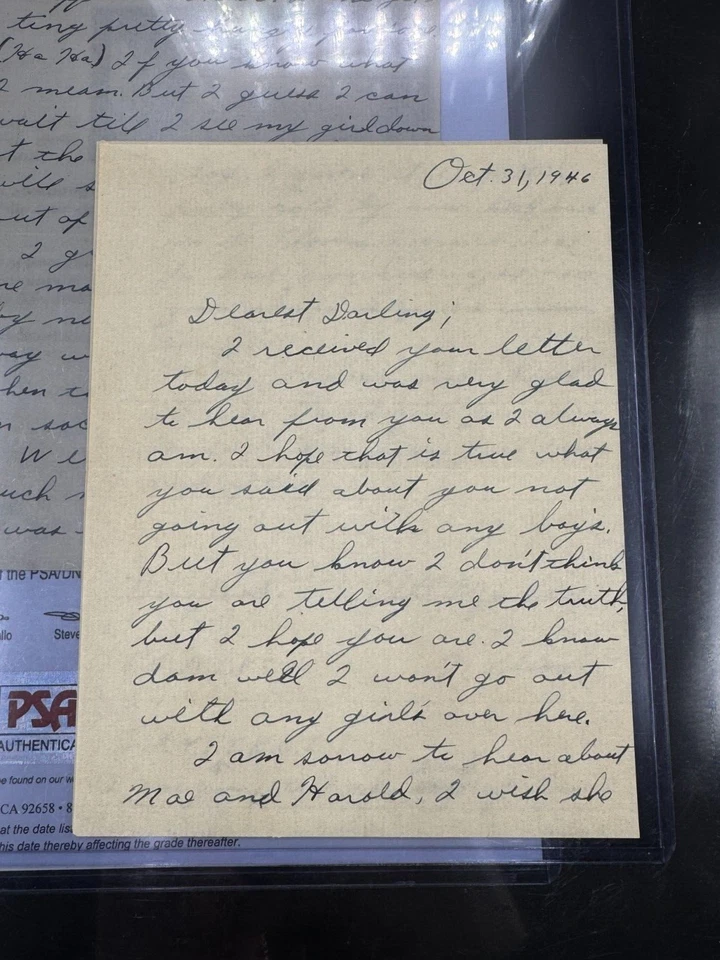 ting pretty
(Ha Ha) I if you know what
I mean. But I guess I can
wait till I see my girl down
t the
will s
out of
I g
me ma
by ne
way w
hen t
n soc
We
uch
was
f the PSA/DN
llo Steve
PSA
AUTHENTICA
be found on our w
CA 92658 • 8
at the date lis
his date thereby affecting the grade thereafter.
Oct. 31, 1946
Dearest Darling;
I received your letter
today and was very glad
to hear from you as I always
am. I hope that is true what
you said about you not
going out with any boy's.
But you know I don't think
you are telling me the truth,
but I hope you are. I know
dam well I won't go out
with any girl's over here.
I am sorrow to hear about
Mae and Harold, I wish she